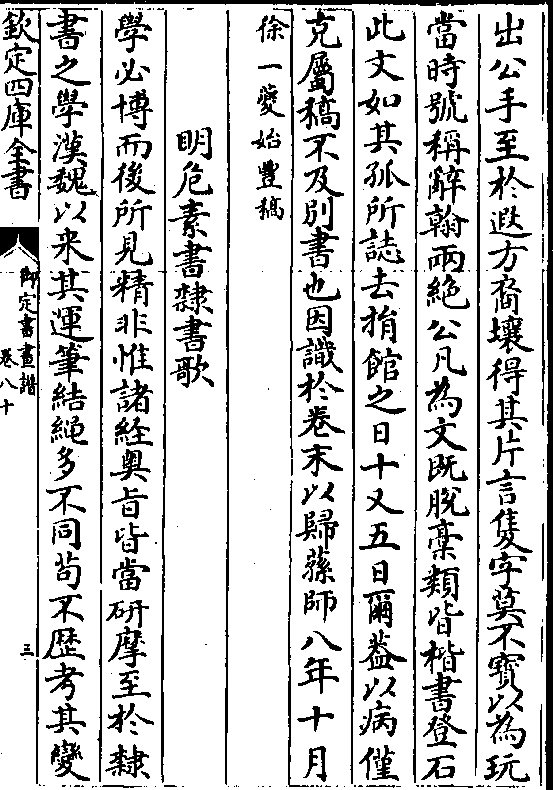 出公手至於遐方裔壤得其片言隻字莫不寳以為玩
當時號稱辭翰兩絶公凡為文既脫稾類皆楷書登石
此文如其孤所誌去捐館之日十又五日爾葢以病僅
克屬稿不及别書也因識於卷末以歸蓀師八年十月
徐一蘷始豐稿
明危素書隸書歌
學必博而後所見精非惟諸經奥旨皆當研摩至於隸
書之學漢魏以来其運筆結繩多不同茍不歴考其變
欽定四庫全書
御定書畫譜
卷八十
三